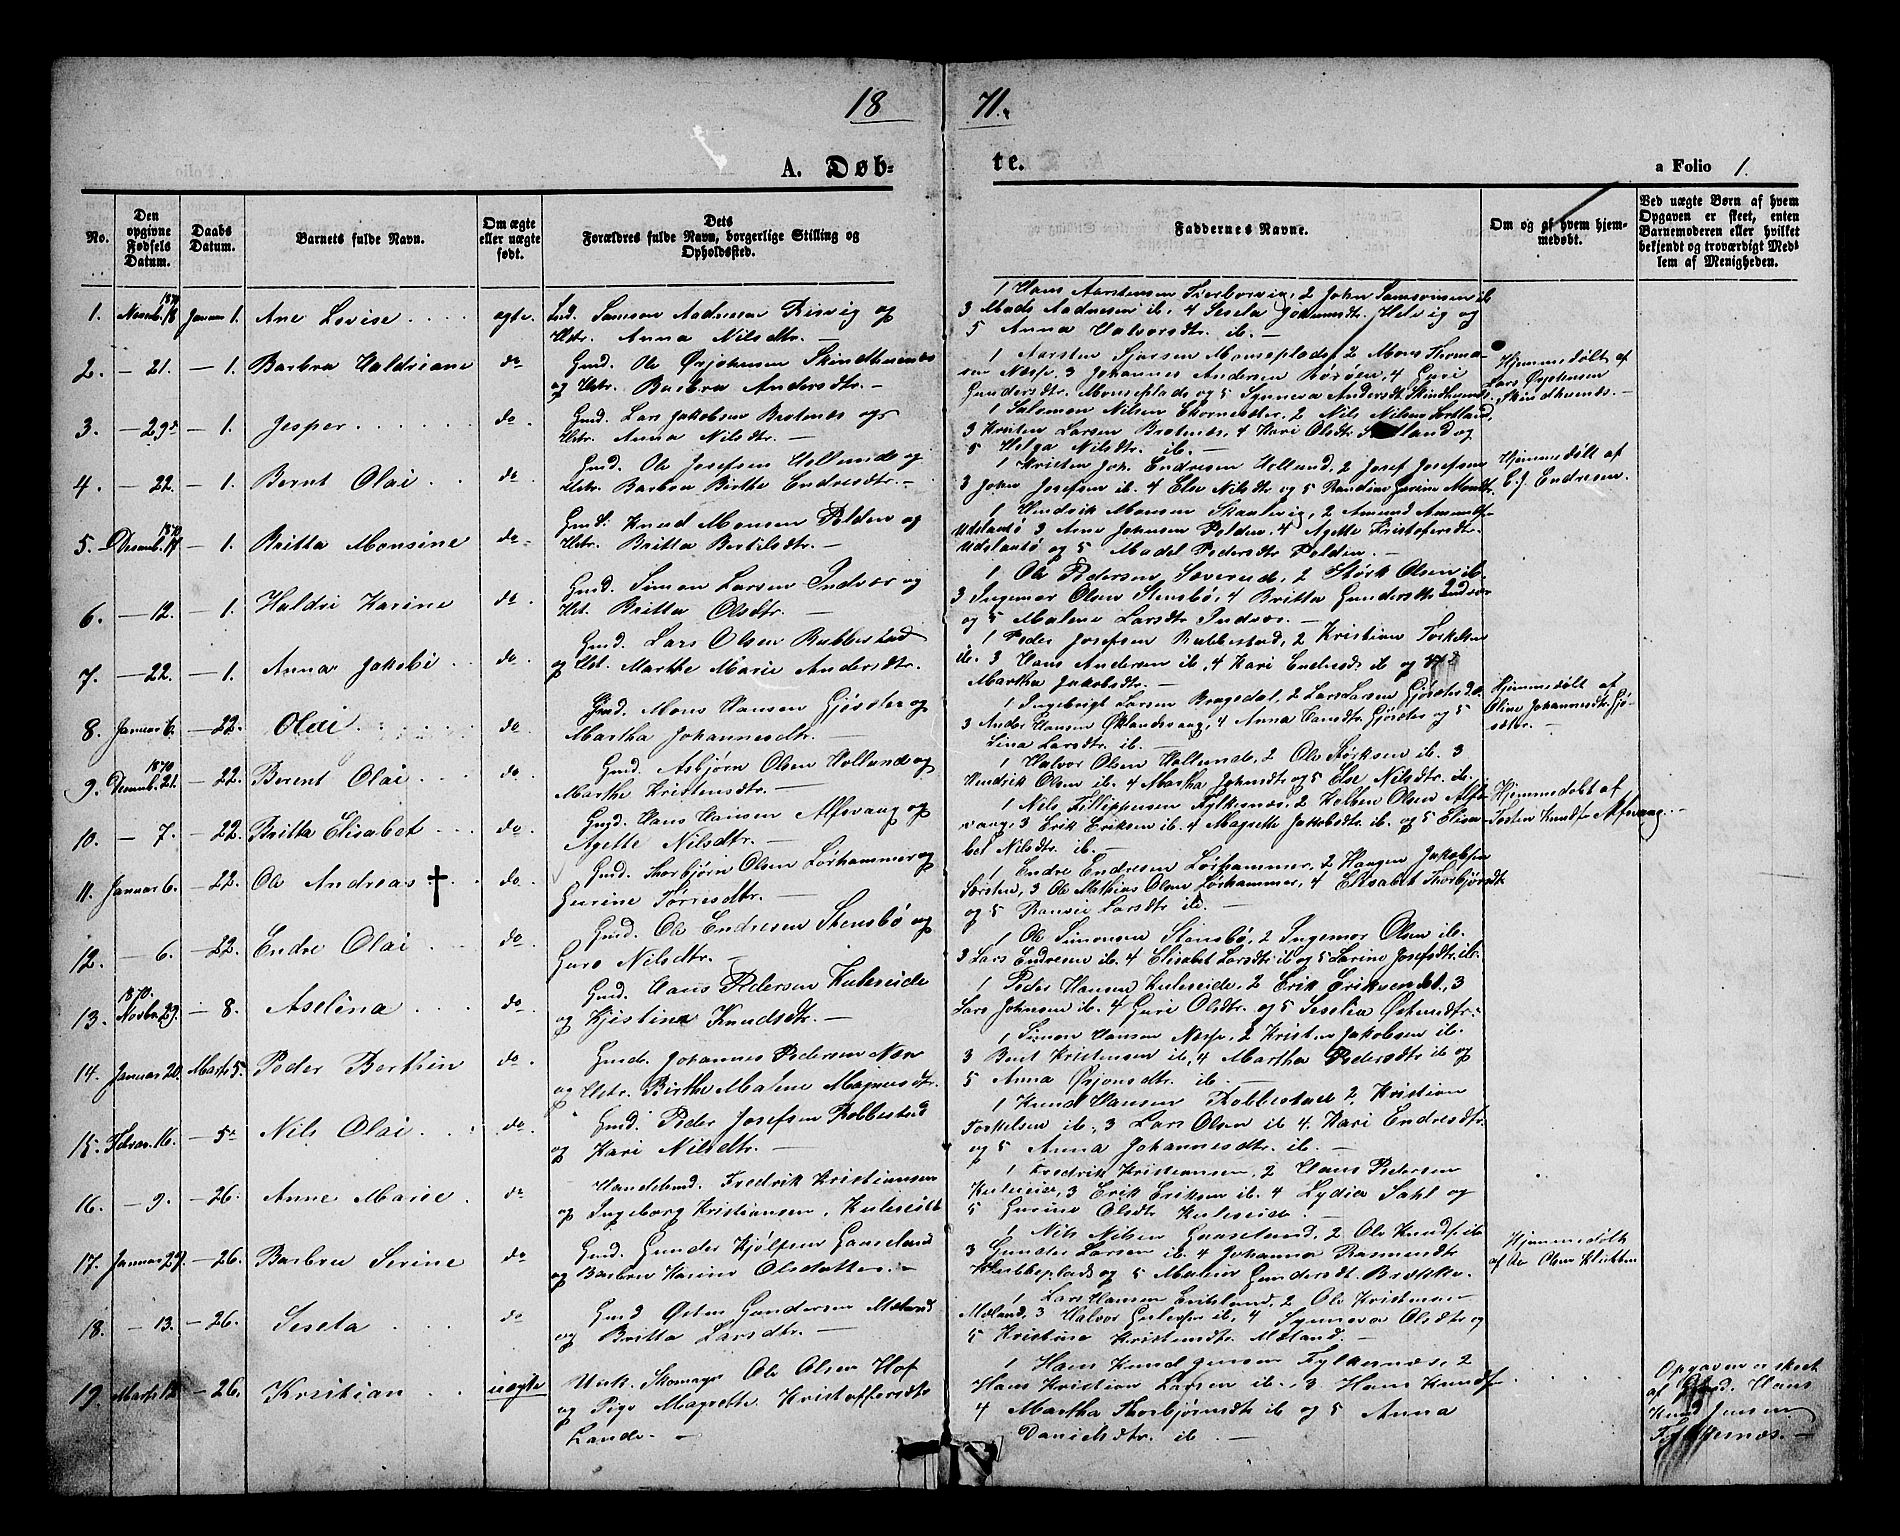 18 71.
A. Døb- te.
a Folio 1.
No.
Den opgivne Fødsels Datum.
Daabs Datum.
Barnets fulde Navn.
Om ægte eller uægte født.
Dets Forældres fulde Navn, borgerlige Stilling og Opholdssted.
Faddernes Navne.
Om og af hvem hjemmedøbt.
Ved uægte Børn af hvem Opgaven er skeet, enten Barnemoderen eller hvilket bekjendt og troværdigt Medlem af Menigheden.
1. 1870 Novemb. 18 Januar 1. Ane Lovise ægte. Samson Aadnesen Risvig og
Hstr. Anna Nilsdtr. —
1 Hans Aarstensen 2 John Samsonsen ib
3 Mads Aadnesen ib. 4 Sesela og
5 Anna Halvorsdtr. ib. —
2. — 21. — 1. Barbra Haldriane do Gmd. Ole Ørjohnsen Skindhuenæs
og Hstr. Barbra Andersdtr. —
1 Aarsten Monseplads, 2 Mons
3 Johannes Andersen Børøen, 4 Guri
Gundersdtr. Monseplads og 5 Synneva Andersdtr.
Hjemmedøbt af
Lars Ørjohnsen
3. — 29 — 1. Jesper do Gmd. Lars Jakobsen Brotnæs og
Hstr. Anna Nilsdtr. —
1 Salomon Nilsen 2 Nils Nilsen
3 Kristen Larsen Brotnæs, 4 Kari Olsdtr. og
5 Helga Nilsdtr. ib. —
4. — 22. — 1. Bernt Olai do Gmd. Ole Josefsen Hollund og
Hstr. Barbra Birthe Endresdtr. —
1 Kristen Joh. Endresen Hollund, 2 Josef Josefsen
3 John Josefsen ib. 4 Else Nilsdtr og 5 Gurine
Hjemmedøbt af
C. J. Endresen.
5. 1870 Decemb. 17 — 1. Britta Monsine do Gmd. Knud Monsen Polden og
Hstr. Britta Bertilsdtr. —
1 Hendrik Monsen 2 Amund
3 Arne Johnsen Polden, 4 Agette Kristofersdtr.
og 5 Madel Pedersdtr Polden. —
6. — 12. — 1. Haldri Karine do Gmd. Simon Larsen Indvær og
Hst. Britta Olsdtr. —
1 Ole Pedersen Sæverud, 2 Størk Olsen ib.
3 Ingemor Olsen Stensbø, 4 Britta Gundersdtr Indvær
og 5 Malene Larsdtr Indvær. —
7. — 22. — 1. Anna Jakobi do Gmd. Lars Olsen Rubbestad
og Hst. Marthe Marie Andersdtr.
1 Peder Josefsen Rubbestad, 2 Kristian Torkelsen
ib. 3 Hans Andersen ib, 4 Kari Endresdtr ib og 5
Martha Jakobsdtr. —
8. Januar 6. — 22. Olai do Gmd. Mons Hansen Gjøsæter og
Martha Johannesdtr.
1 Ingebrigt Larsen Bragedal, 2 Lars Larsen
3 Anders Hansen Øklandsvaag, 4 Anna og 5
Lina Larsdtr. ib. —
Hjemmedøbt af
Oline Johannesdtr.
9. 1870 Decemb. 21. — 22. Berent Olai do Gmd. Asbjørn Olsen Hollund og
Marthe Kristensdtr. —
1 Halvor Olsen Hollund, 2 Ole Størksen ib. 3
Hendrik Olsen ib. 4 Martha og 5 Else Nilsdtr. ib.
10. — 7. — 22. Britta Elisabet do Gmd. Hans Hansen Alfsvaag og
Agette Nilsdtr. —
1 Nils Fillippensen Fylkesnæs, 2 Kolben Olsen Alfsvaag,
3 Erik Eriksen ib. 4 Magrette Jakobsdtr ib. og 5 Elisabet
Nilsdtr. ib. —
Hjemmedøbt af
Alfsvaag. —
11. Januar 6. — 22. Ole Andreas † do Gmd. Thorbjørn Olsen Lørhammer og
Gurine Tørresdtr. —
1 Endre Endresen Lørhammer, 2 Haagen Jakobsen
3 Ole Mathias Olsen Lørhammer, 4 Elisabet Thorbjørsdtr
og 5 Larsdtr ib. —
12. — 6. — 22. Endre Olai do Gmd. Ole Endresen Stensbø og
Guro Nilsdtr. —
1 Ole Simonsen Stensbø, 2 Ingemor Olsen ib.
3 Lars Endresen ib. 4 Elisabet Larsdtr ib og 5 Larine Josefsdtr ib.
13. 1870. Novbr. 29. — 8. Aselina do Gmd. Hans Pedersen Kuleseide
og Kjistina Knudsdtr. —
1 Peder Hansen Kuleseide, 2 Erik 3
Lars Johnsen ib. 4 Guri Olsdtr. og 5 Seselia
14. Januar 20. Marts 5. Peder Bertin do Gmd. Johannes Pedersen
og Hstr. Birthe Malene Magnusdtr.
1 Simon Hansen 2 Kristen Jakobsen ib.
3 Bent Kristensen ib, 4 Martha Pedersdtr ib og
5 Anna Ørjonsdtr. ib. —
15. Februar 16. — 5. Nils Olai do Gmd. Peder Josefsen Robbestad
og Kari Nilsdtr. —
1 Knud Hansen Robbestad 2. Kristian
Torkelsen ib., 3 Lars Olsen ib 4. Kari Endresdtr
og 5 Anna Johannesdtr ib. —
16. — 9. — 26. Anne Marie do Handelsmd. Fredrik Kristiansen
og Ingeborg Kristiansen, Kuleseide
1 Fredrik Kristiansen, 2 Hans Pedersen
Kuleseide, 3 Erik Eriksen ib. 4 Lydia Sahl og
5 Gurine Olsdtr Kuleseide. —
17. Januar 27. — 26. Barbru Serine do Gmd. Gunder Kjølfsen Gaaseland
og Barbru Karine Olsdatter. —
1 Nils Nilsen Gaaseland, 2 Ole ib
3 Gunder Larsen ib. 4 Johanna Rasmusdtr
og 5 Malene Gundersdt. Brekke.
Hjemmedøbt
af Ole Olsen
18. — 13. — 26. Seseta do Gmd Østen Gundersen Mæland
og Britta Larsdtr. —
1 Lars Hansen 2 Ole Kristensen
Mæland, 3 Halvor ib, 4 Synneva Olsdtr og
5 Kristine Kristensdtr. Mæland. —
19. Marts 12 — 26. Kristian uægte Unk. Skomager Ole Olsen Hof
og Pige Magrette Kristoffersdtr
Lande. —
1 Hans Knud Jensen Fylkesnæs, 2
Hans Kristian Larsen ib. 3 Hans
4 Martha Thorbjørnsdtr ib og 5 Anna
Danielsdtr. ib —
Opgaven er skeet
af Gmd. Hans
Knud Jensen
Fylkesnæs. —